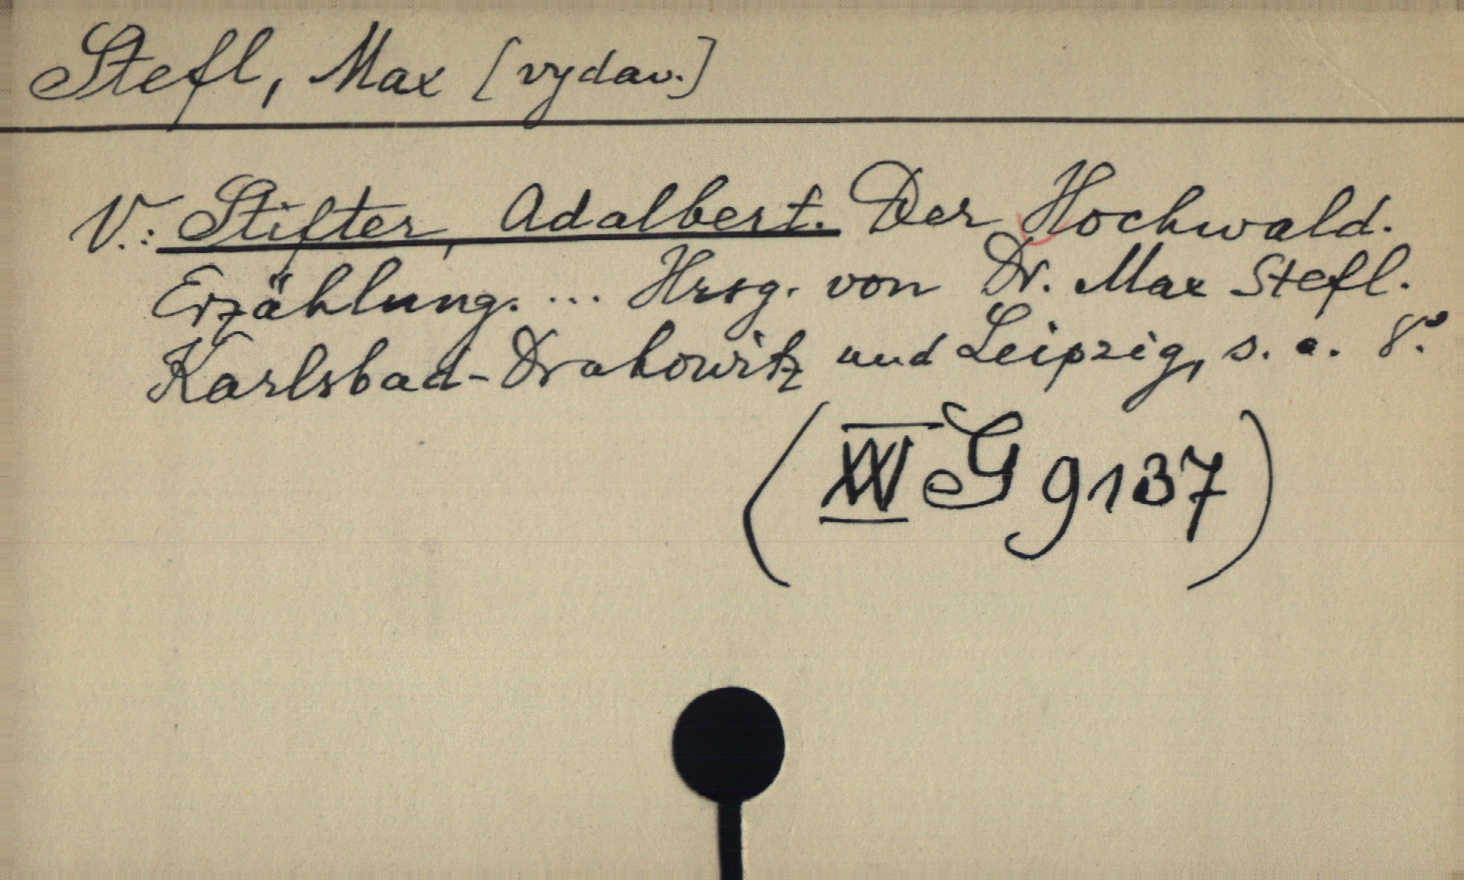 Stefl, Max [vydav.]
V.: Stifter, Adalbert. Der Hochwald.
Erzählung. ... Hrsg. von Dr. Max Stefl.
Karlsbad-Drahowitz und Leipzig, s. a. 8°.
G 9137)